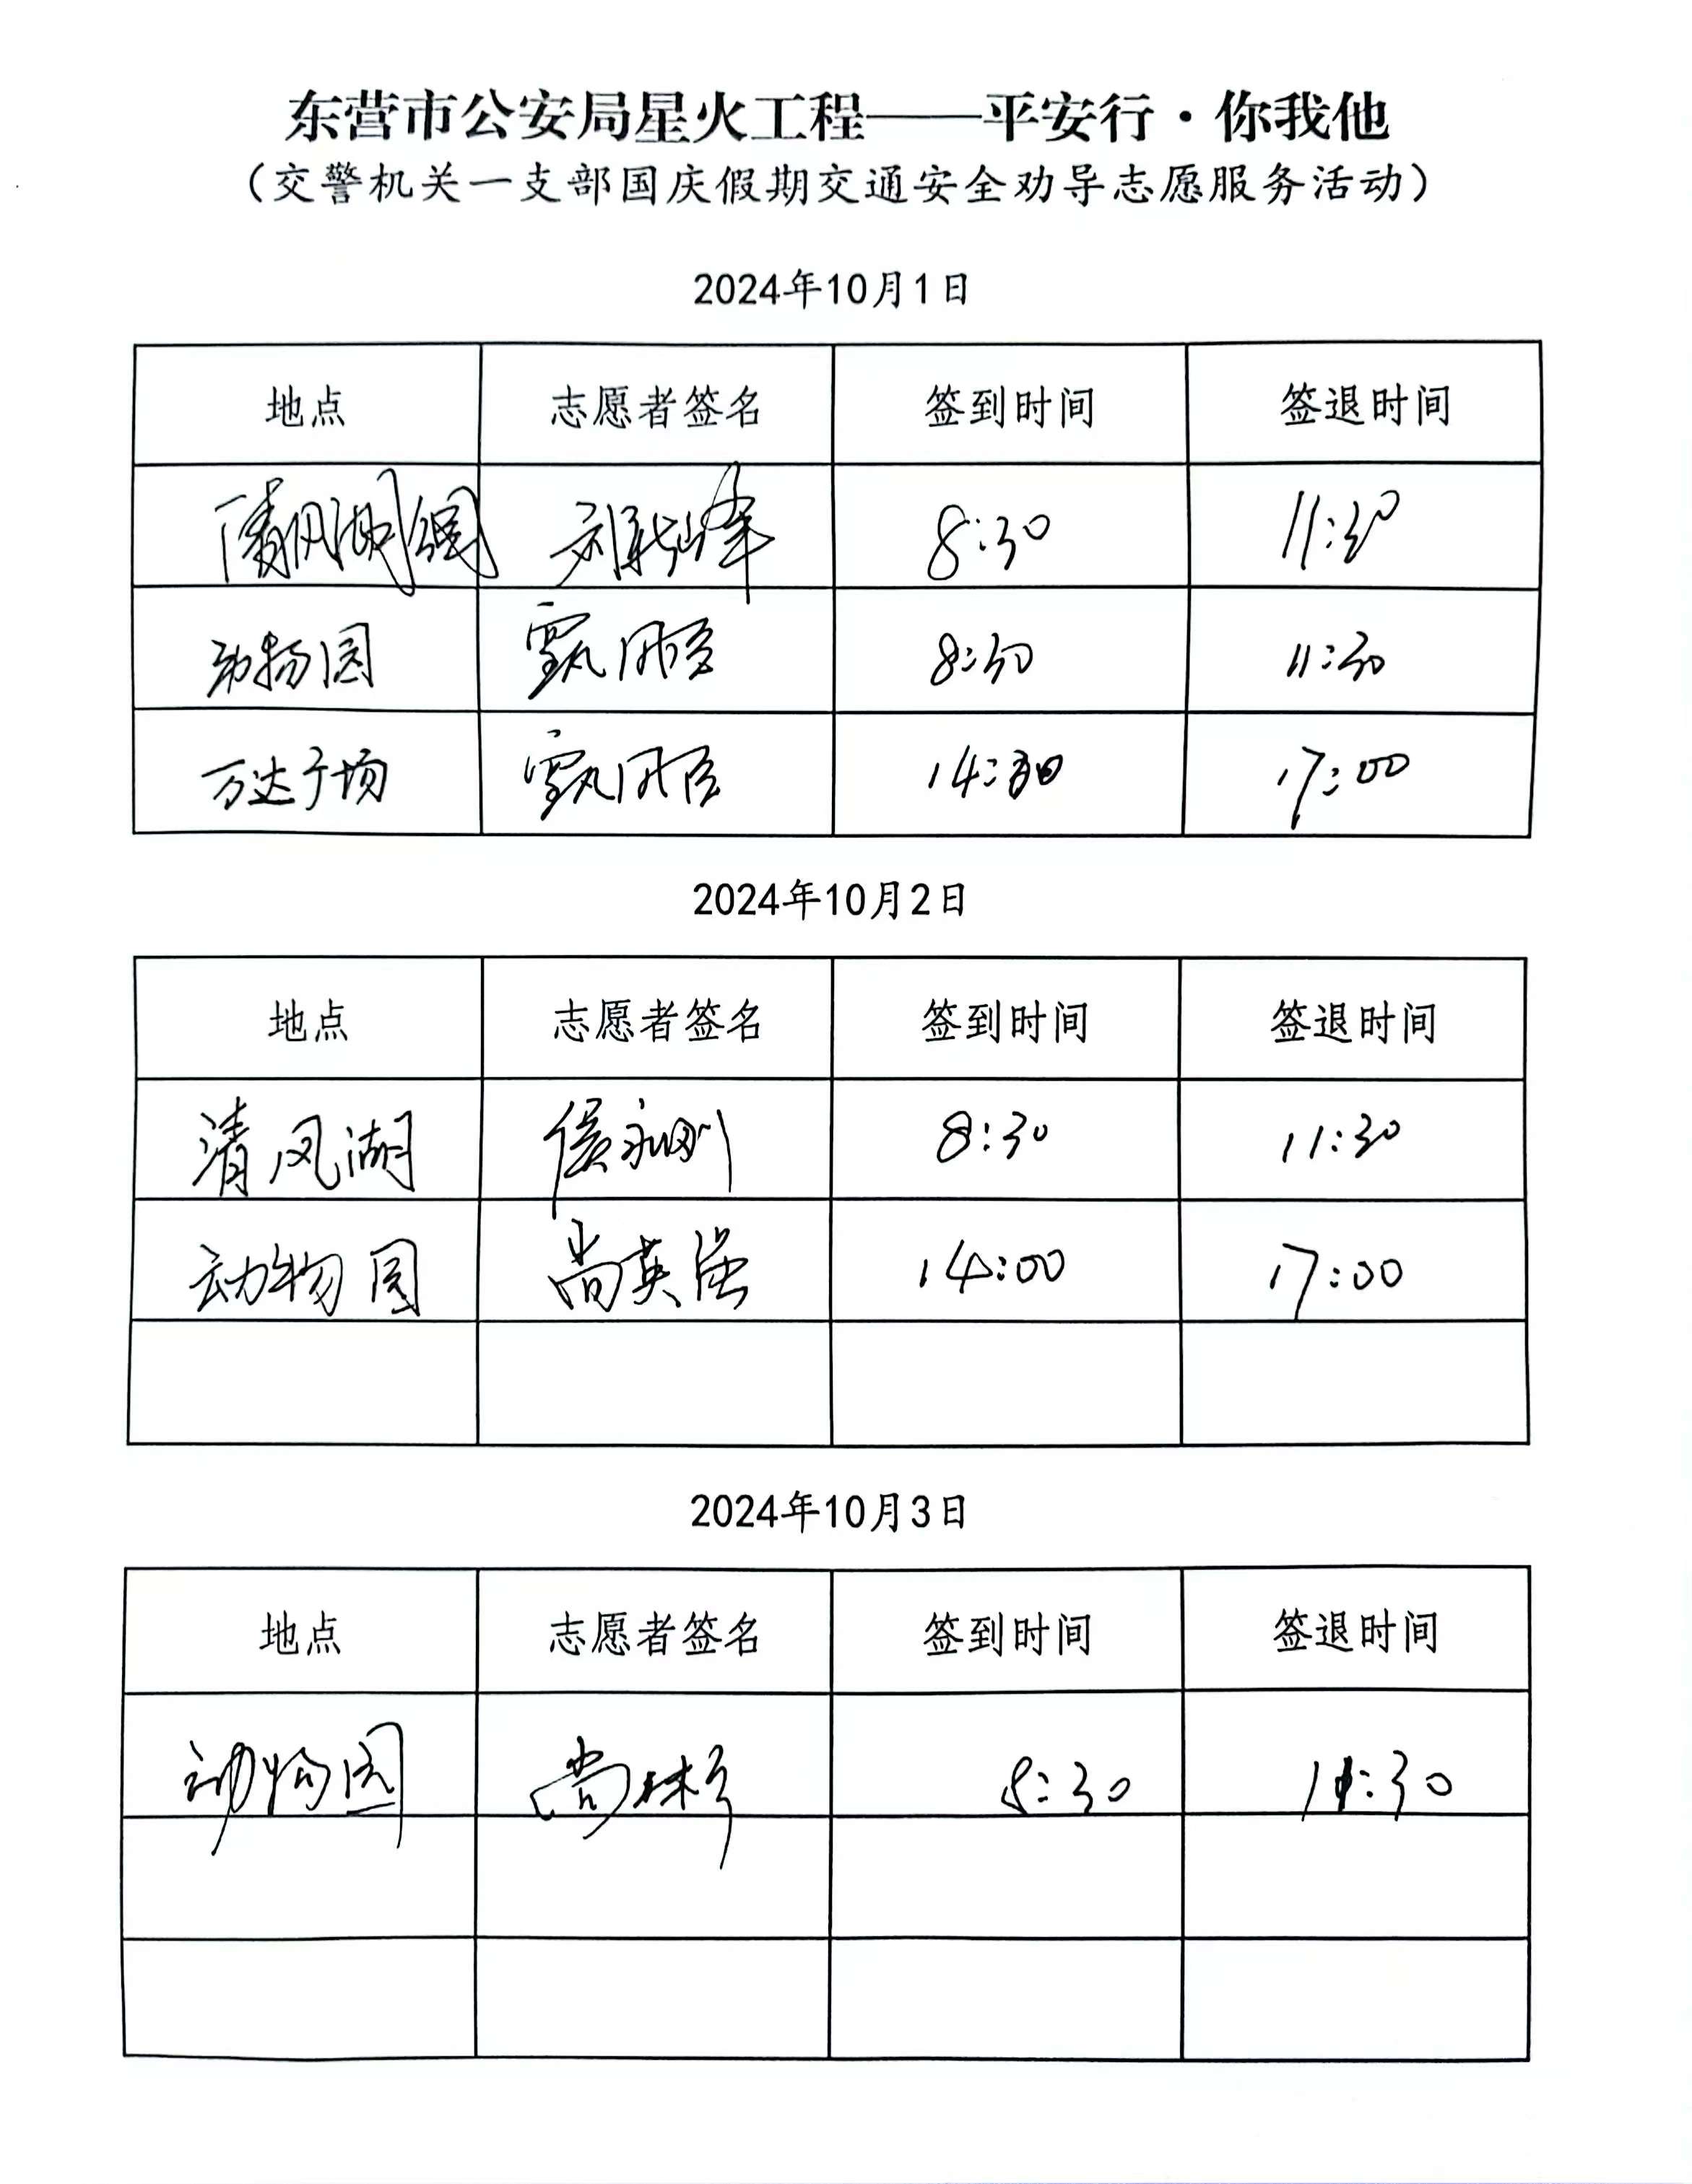 东营市公安局星火工程——平安行·你我他
（交警机关一支部国庆假期交通安全劝导志愿服务活动）
2024年10月1日
地点 志愿者签名 签到时间 签退时间
清风湖 8:30 11:30
动物园 8:30 11:30
万达广场 17:00
2024年10月2日
地点 志愿者签名 签到时间 签退时间
清风湖 侯永刚 8:30 11:30
动物园 尚英强 14:00 17:00
2024年10月3日
地点 志愿者签名 签到时间 签退时间
动物园 8:30 11:30